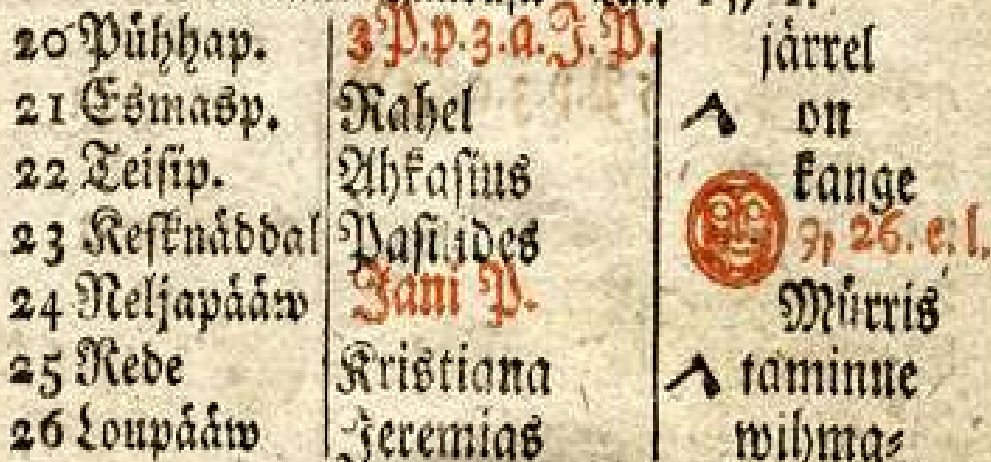 20 Pühhap. 3 P. p. 3. a. J. P. järrel
21 Esmasp. Rahel on
22 Teisip. Ahkasius kange
23 Kesknäddal Pasilides 9, 26. e. l.
24 Neljapääw Jani P. Mürris
25 Rede Kristiana taminne
26 Loupääw Jeremias wihma⸗